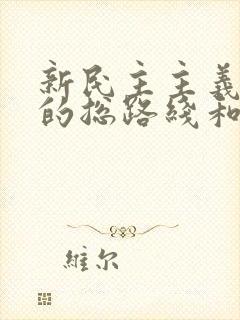 新民主主義
的总路綫和
維尔